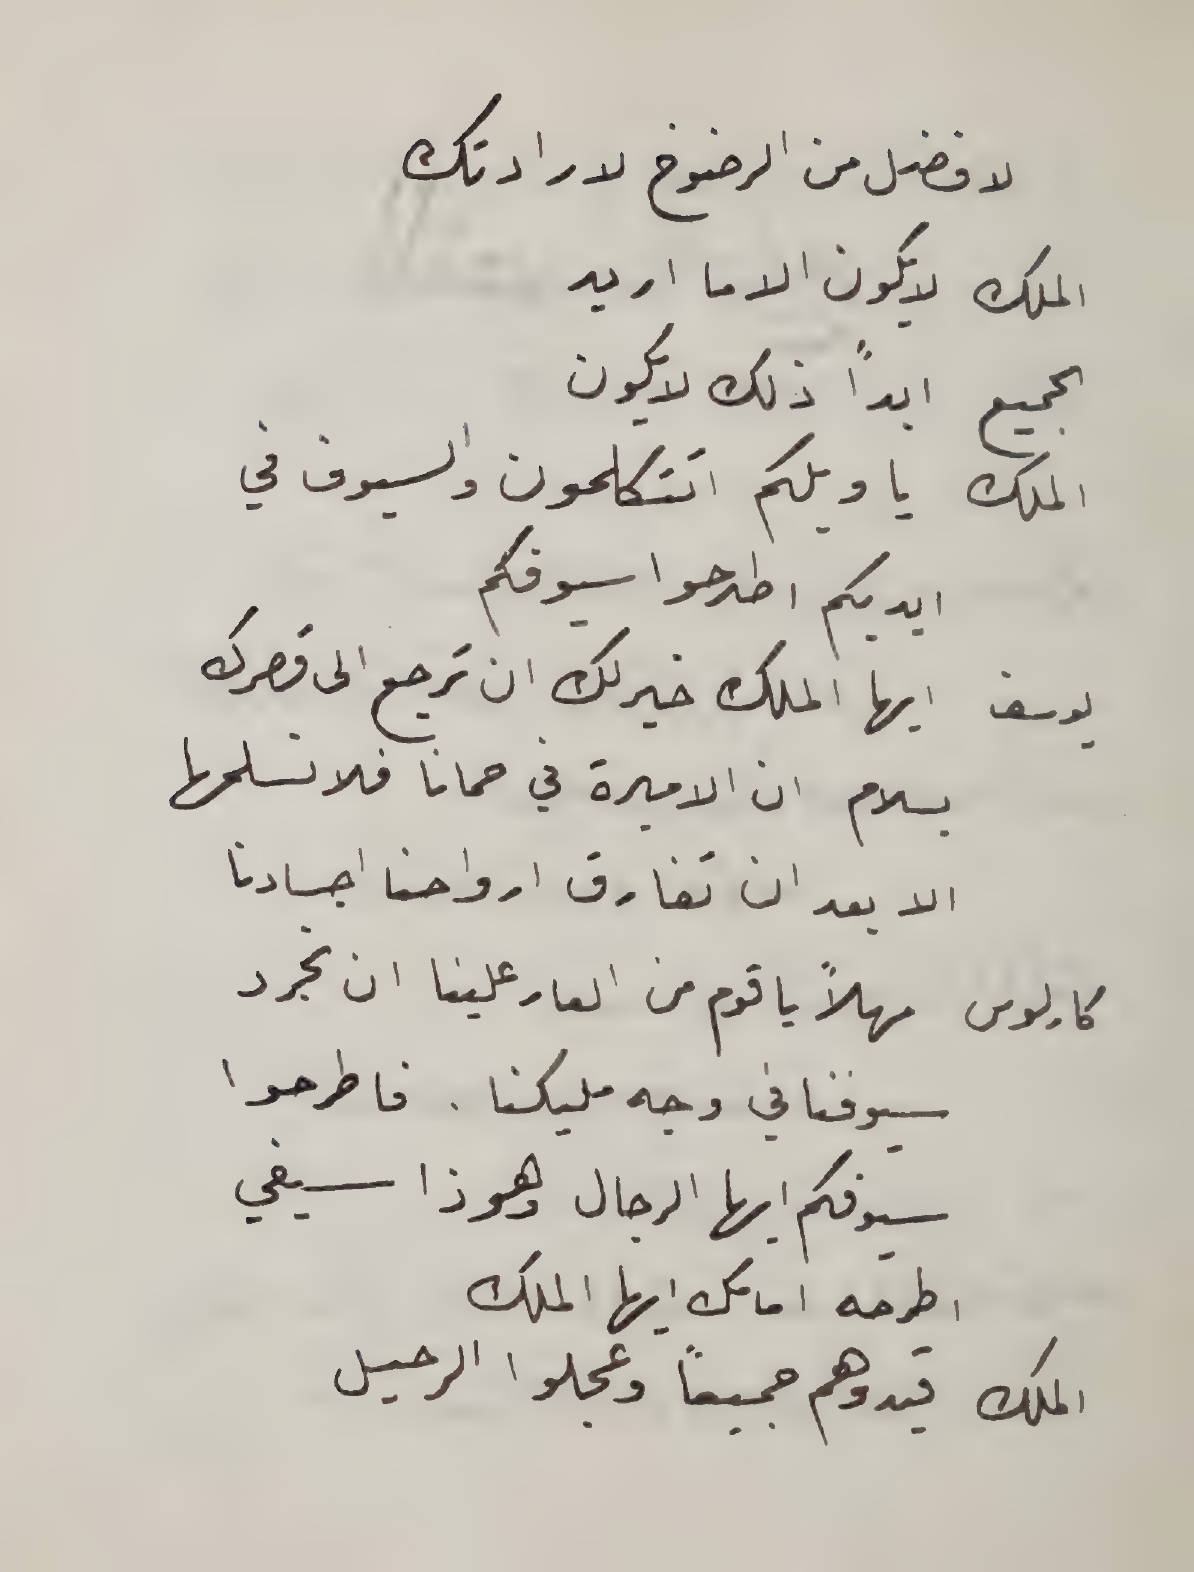 لافضل من الرضوخ لارادتك
الملك لايكون الا ما اريد
الجميع ابداً ذلك لايكون
الملك يا ويلكم اتتكلمون والسيوف في
ايديكم اطرحوا سيوفكم
يوسف ايها الملك خير لك ان ترجع الى قصرك
بسلام ان الاميرة في حمانا فلا تسلمها
الا بعد ان تفارق ارواحنا اجسادنا
كارلوس مهلاً ياقوم من العار علينا ان نجرد
سيوفنا في وجه مليكنا . فاطرحوا
سيوفكم ايها الرجال وهوذا سيفي
اطرحه امامك ايها الملك
الملك قيدوهم جميعاً وعجلوا الرحيل